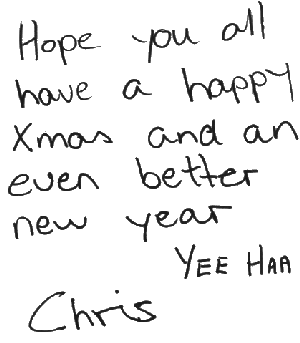 Hope you all
have a happy
Xmas and an
even better
new year
YEE HAA
Chris